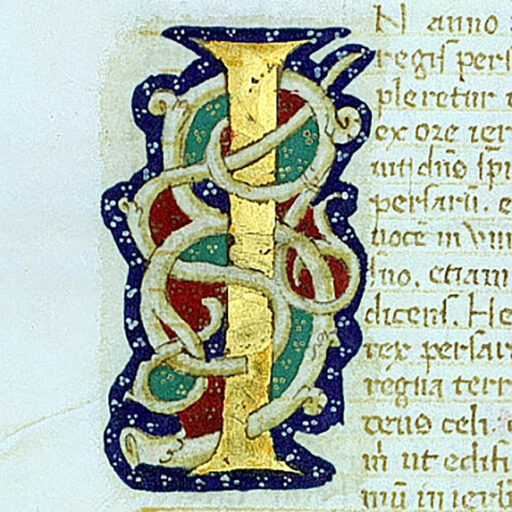 IN anno
regis pers
pleretur
ex ore ier
uit dn̄s sp̄i
persarū. e
uocē in uni
suo. etiam
dicens. He
rex persar
regna terr
deus celi.
m̄ ut edifi
mū in ierl̄